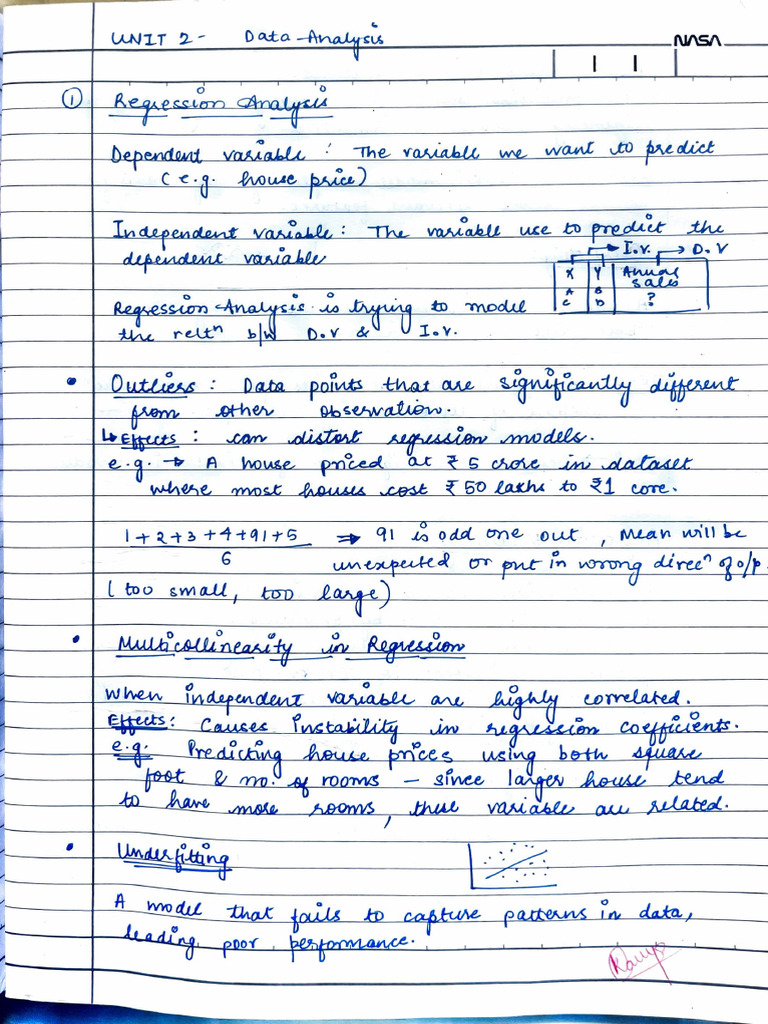 UNIT 2 - Data Analysis
NASA
① Regression Analysis
Dependent variable : The variable we want to predict
(e.g. house price)
Independent variable : The variable use to predict the
dependent variable
→ I.V. → D.V
X Y Annual
sales
A B
C D ?
Regression Analysis is trying to model
the reltⁿ b/w D.V & I.V.
• Outliers : Data points that are significantly different
from other observation.
↳ Effects : can distort regression models.
e.g. → A house priced at ₹ 5 crore in dataset
where most houses cost ₹ 50 lakhs to ₹1 core.
1+2+3+4+91+5 ⇒ 91 is odd one out, Mean will be
6 unexpected or put in wrong direcⁿ of o/p.
(too small, too large)
• Multicollinearity in Regression
When independent variable are highly correlated.
Effects : Causes instability in regression coefficients.
e.g. Predicting house prices using both square
foot & no. of rooms – since larger house tend
to have more rooms, these variable are related.
• Underfitting
A model that fails to capture patterns in data,
leading poor performance.